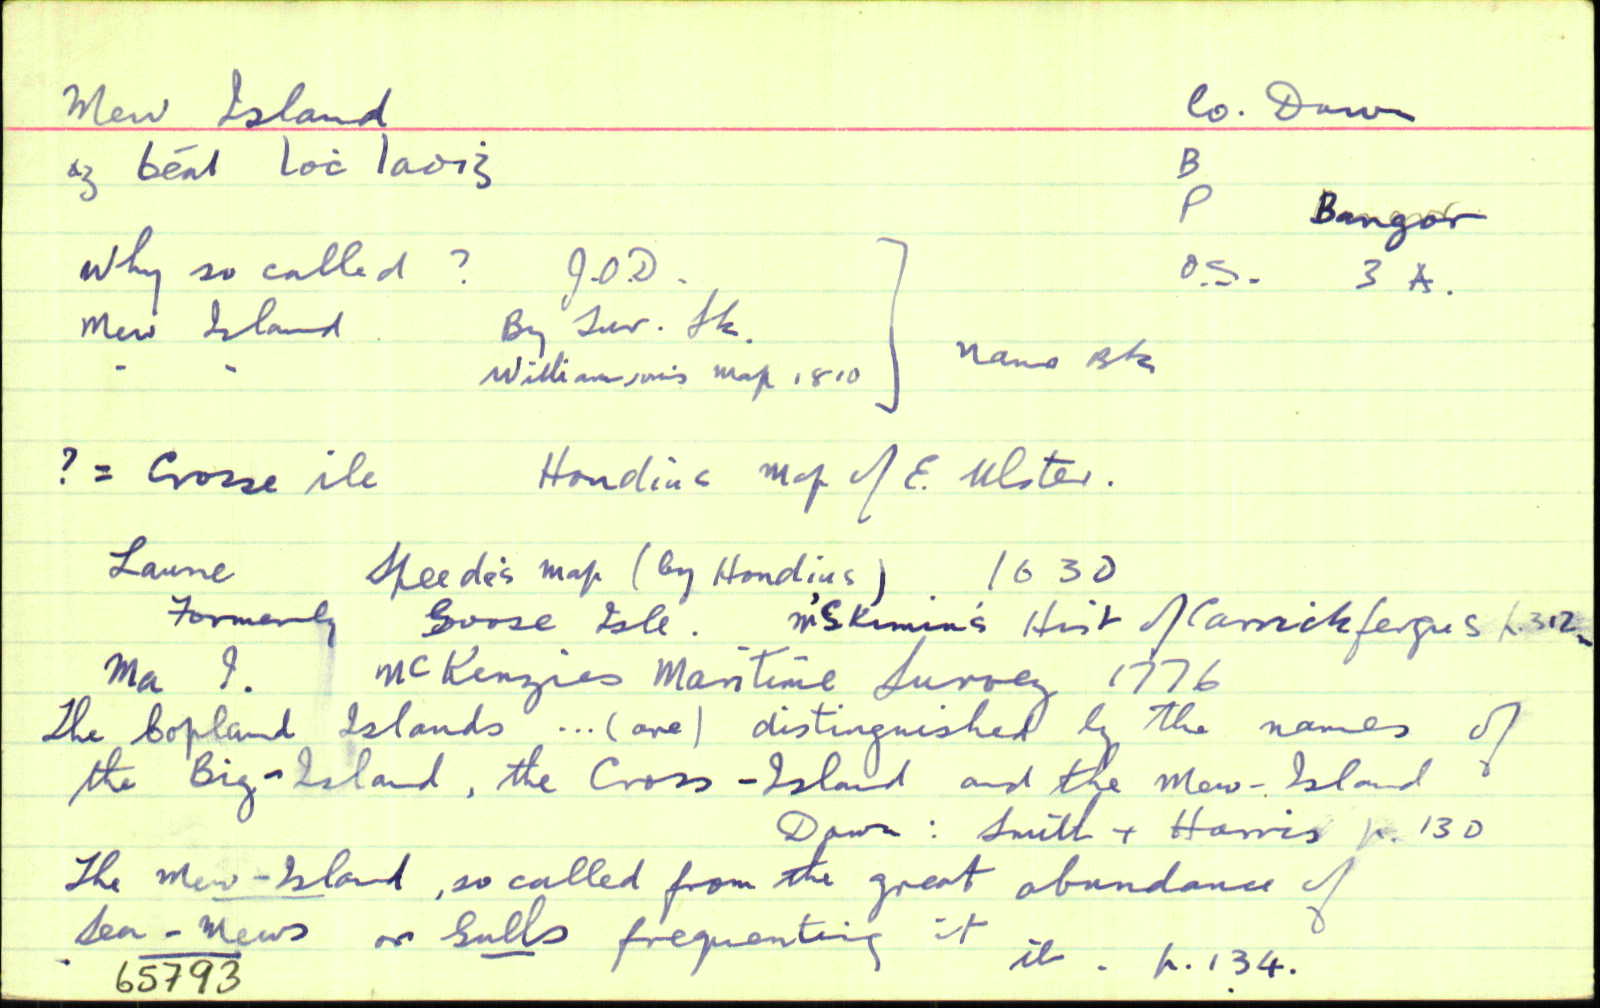 Mew Island Co. Down
ag béal loċ laoiġ B
P Bangor
Why so called ? J.O.D. O.S. 3 A.
Mew Island By Sur. Sk.
" " Williamson's map 1810 Name Bk
? = Crosse ile Hondius map of E. Ulster.
Laune Speede's map (by Hondius) 1630
Formerly Goose Isle. M'Skimin's Hist of Carrickfergus p. 312
Ma I. McKenzies Maritime Survey 1776
The Copland Islands ... (are) distinguished by the names of
the Big-Island, the Cross-Island and the Mew-Island
Down : Smith + Harris p. 130
The Mew-Island, so called from the great abundance of
Sea-Mews or Gulls frequenting it
ib. p. 134.
65793